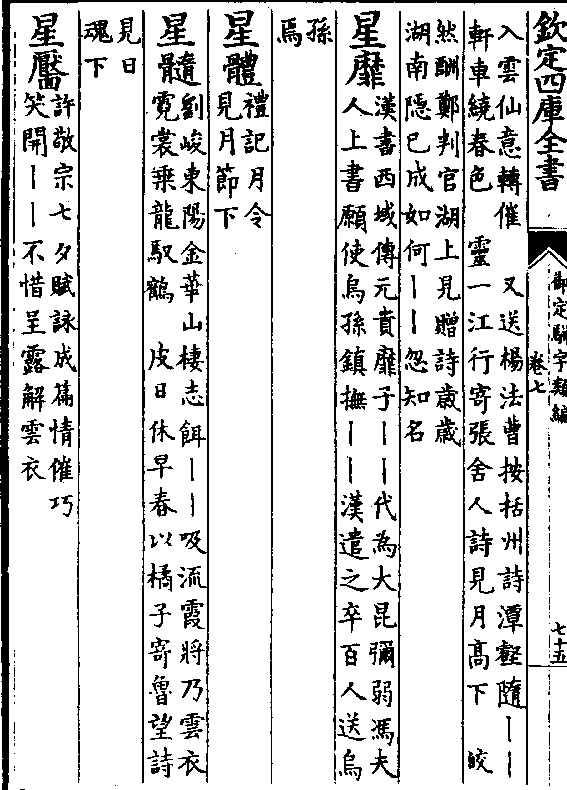 欽定四庫全書
御定駢字類編
卷七
七十五
入雲仙意轉催　又送楊法曹按括州詩潭壑隨丨丨
軒車繞春色　靈一江行寄張舍人詩見月髙下　皎
然酬鄭判官湖上見贈詩歳歳
湖南隠已成如何丨丨忽知名
星靡
漢書西域傳元貴靡子丨丨代為大昆彌弱馮夫
人上書願使烏孫鎮撫丨丨漢遣之卒百人送烏
孫
焉
星體
禮記月令
見月節下
星髓
劉峻東陽金華山棲志餌丨丨吸流霞將乃雲衣
霓裳乗龍馭鶴　皮日休早春以橘子寄魯望詩
見日
魂下
星靨
許敬宗七夕賦詠成篇情催巧
笑開丨丨不惜呈露解雲衣